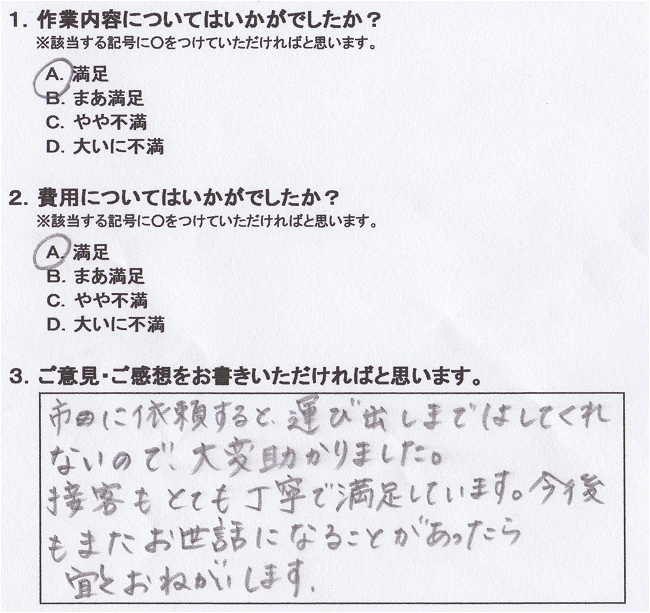 1. 作業内容についてはいかがでしたか？
※該当する記号に○をつけていただければと思います。
A. 満足
B. まあ満足
C. やや不満
D. 大いに不満
2. 費用についてはいかがでしたか？
※該当する記号に○をつけていただければと思います。
A. 満足
B. まあ満足
C. やや不満
D. 大いに不満
3. ご意見・ご感想をお書きいただければと思います。
に依頼すると、運び出しまではしてくれ
ないので、大変助かりました。
接客もとても丁寧で満足しています。今後
もまたお世話になることがあったら
おねがいします.